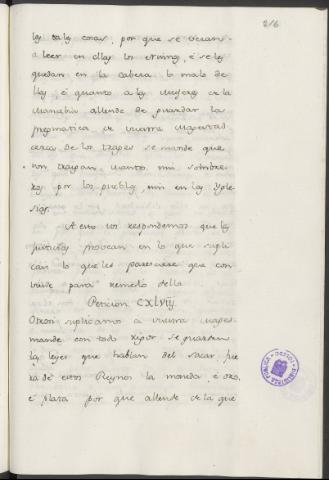 216
las tales cosas, por que se vezan
a leer en ellas los Niños, é se les
quedan en la cabeza lo malo de
llas é quanto a las mujeres de la
allende de guardar la
pregmatica de vuestra magestad
cerca de los trages se mande que
non traygan mantos, nin sombre-
ros por los pueblos, nin en las Ygle-
sias.
A esto vos respondemos que las
justicias provean en lo que supli-
cais lo que les paresciere que con-
viene para remedio dello
Peticion CXLVIIJ.
Otrosi suplicamos a vuestra mages
mande con todo rigor se guarden
las leyes que hablan del sacar fue
ra de estos Reynos la moneda, é oro,
é plata por que allende de la que